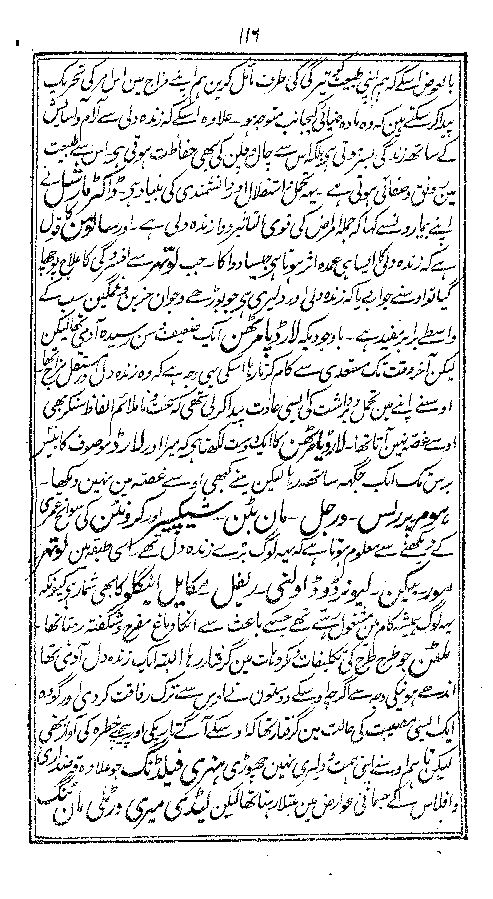 ۱۱۶
بالعوض اسکے کہ ہم اپنی طبیعت کو تیرگی کی طرف مائل کرین ہم اپنے مزاج مین اس امر کی تحریک
پیدا کرسکتے ہین کہ وہ مادہ ضیائی کیجانب متوجہ ہو۔ علاوہ اسکے کہ زندہ دلی سے آرام و آسایش
کے ساتھ زندگی بسر ہوتی ہی بلکہ اس سے چال وچلن کی بھی حفاظت ہوتی ہی۔ اس سے طبیعت
مین رونق و صفائی ہوتی ہے۔ یہہ تحمل استقلال اور دانشمندی کی بنیاد ہی۔ ڈاکٹر مارشل نے
اپنے بیمارون سے کہا کہ جملہ امراض کی قوی التاثیر دوا زندہ دلی ہے۔ اور سالومن کا قول
ہے کہ زندہ دلی کا ایسا ہی عمدہ اثر ہوتا ہی جیسا دوا کا۔ جب لوتھر سے افسردگی کا علاج پوچھا
گیا تو اوسنے جواب دیا کہ زندہ دلی اور دلیری ہی جو بوڑھے و جوان حزین و غمگین سب کے
واسطے برابر مفید ہے۔ باوجودیکہ لارڈ پامرسٹن ایک ضعیف و سن رسیدہ آدمی تھا لیکن
لیکن آخر وقت تک مستعدی سے کام کرتا رہا اسکی یہی وجہ ہے کہ وہ زندہ دل اور مستقل مزاج تھا
اوسنے اپنے مین تحمل و برداشت کی ایسی عادت پیدا کرلی تھی کہ سخت و ناملائم الفاظ سنکر بھی
اوسے غصہ نہین آتا تھا۔ لارڈ پامرسٹن کا ایک دوست لکھتا ہی کہ میرا اور لارڈ موصوف کا بیس
برس تک ایک جگہہ ساتھ رہا لیکن مینے کبھی اوسے غصہ مین نہین دیکھا۔
ہومر ہوریس۔ ورجل۔ مان ٹین۔ شیکسپیر اور کرونٹس کی سوانح عمری
کے دیکھنے سے معلوم ہوتا ہے کہ یہہ لوگ بڑے زندہ دل تھے۔ اسی طبقہ مین لوتھر
مور۔ بیکن۔ لیونارڈو ڈاونسی۔ ریفل و مکایل انیگلو کا بھی شمار ہی کیونکہ
یہہ لوگ ہمیشہ کام مین مشغول رہتے تھے جسکے باعث سے انکا دماغ مفرح و شگفتہ رہتا تھا۔
ملٹن جو طرح طرح کی تکلیفات و مکروہات مین گرفتار رہا البتہ ایک زندہ دل آدمی تھا
اندھے ہونیکی وجہ سے اگرچہ اوسکے دوستون نے اوس سے ترک رفاقت کردی اور گو وہ
ایک ایسی مصیبت کی حالت مین گرفتار تھا کہ اوسکے آگے تاریکی اور پیچھے خطرہ کی آواز تھی
لیکن تاہم اوسنے اپنی ہمت و دلیری نہین چھوڑی ہنری فیلڈنگ جو علاوہ قرضداری
و افلاس کے جسمانی عوارض مین مبتلا رہتا تھا لیکن لیڈی میری ورٹلی مان ٹیگ